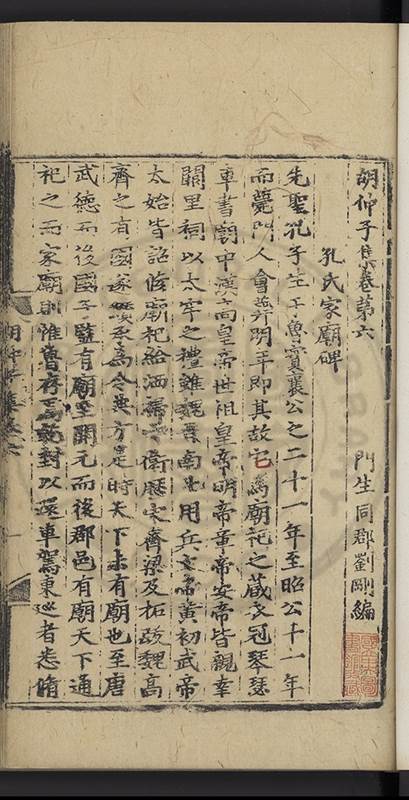 胡仲子集卷第六
門生同郡劉剛編
孔氏家廟碑
先聖孔子生于魯襄公之二十一年至昭公十一年
而薨門人會葬明年即其故宅為廟祀之藏衣冠琴瑟
車書廟中漢高皇帝世祖皇帝明帝章帝安帝皆親幸
闕里祠以太牢之禮雖魏晉南北用兵文帝黃初武帝
太始皆詔脩廟祀給洒掃守衛歷宋齊梁及拓跋魏高
齊之有國遂為令典方是時天下未有廟也至唐
武德而後國子監有廟至開元而後郡邑有廟天下通
祀之而家廟則惟魯存焉封以還車駕東巡者悉脩
胡仲子集卷六
一